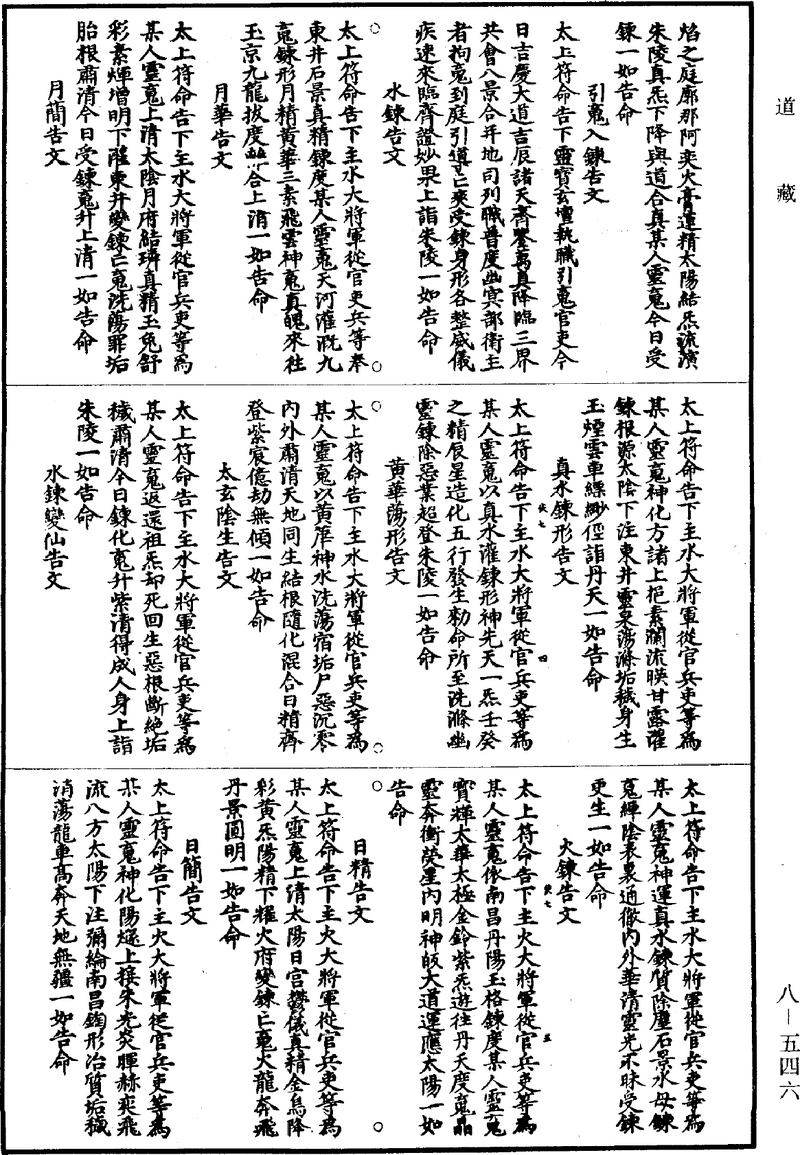 道藏
焰之庭廓那阿奕火膏運精太陽結炁流演
朱陵真炁下降與道合真某人靈䰟今日受
鍊一如告命
引䰟入鍊告文
太上符命告下靈寶玄壇執職引䰟官吏今
日吉慶大道吉辰諸天齊鑒萬真降臨三界
共會八景合并地司列職普度幽冥部衛主
者拘䰟到庭引導亡爽受鍊身形各整威儀
疾速來臨齊證妙果上詣朱陵一如告命
水鍊告文
太上符命告下主水大將軍從官吏兵等奉
東井石景真精鍊度某人靈䰟天河灌溉九
䰟鍊形月精黃華三素飛雲神䰟真魄來往
玉京九龍拔度幽合上清一如告命
月華告文
太上符命告下主水大將軍從官兵吏等為
某人靈䰟上清太陰月府結璘真精玉兔舒
彩素煇增明下灌東井變鍊亡䰟洗蕩罪垢
胎根肅清今日受鍊䰟升上清一如告命
月簡告文
太上符命告下主水大將軍從官兵吏等為
某人靈䰟神化方諸上挹素瀾流暎甘露灌
鍊根源太陰下注東井靈泉蕩滌垢穢身生
玉煙雲車縹緲徑詣丹天一如告命
真水鍊形告文
太上符命告下主水大將軍從官兵吏等為
某人靈䰟以真水灌鍊形神先天一炁壬癸
之精辰星造化五行發生勑命所至洗滌幽
靈鍊除惡業超登朱陵一如告命
黃華蕩形告文
太上符命告下主水大將軍從官兵吏等為
某人靈䰟以黃華神水洗蕩宿垢尸惡沉零
內外肅清天地同生結根隨化混合日精齊
登紫宸億劫無傾一如告命
太玄陰生告文
太上符命告下主水大將軍從官兵吏等為
某人靈䰟返還祖炁却死回生惡根斷絕垢
穢肅清今日鍊化䰟升紫清得成人身上詣
朱陵一如告命
水鍊變仙告文
太上符命告下主水大將軍從官兵吏等為
某人靈䰟神運真水鍊質除塵石景水母鍊
䰟緷陰表裏通徹內外華清靈光不昧受鍊
更生一如告命
火鍊告文
太上符命告下主火大將軍從官兵吏等為
某人靈䰟依南昌丹陽玉格鍊度某人靈䰟
寶輝太華太極金鈴紫炁遊往丹天度䰟晶
靈奔衝熒星內明神皈大道運應太陽一如
告命
日精告文
太上符命告下主火大將軍從官兵吏等為
某人靈䰟上清太陽日宮鬱儀真精金烏降
彩黃炁陽精下耀火府變鍊亡䰟火龍奔飛
丹景圓明一如告命
日簡告文
太上符命告下主火大將軍從官兵吏等為
某人靈䰟神化陽燧上接朱光炎暉赫奕飛
流八方太陽下注彌綸南昌鎔形冶質垢穢
消蕩龍車髙奔天地無疆一如告命
八－五四六